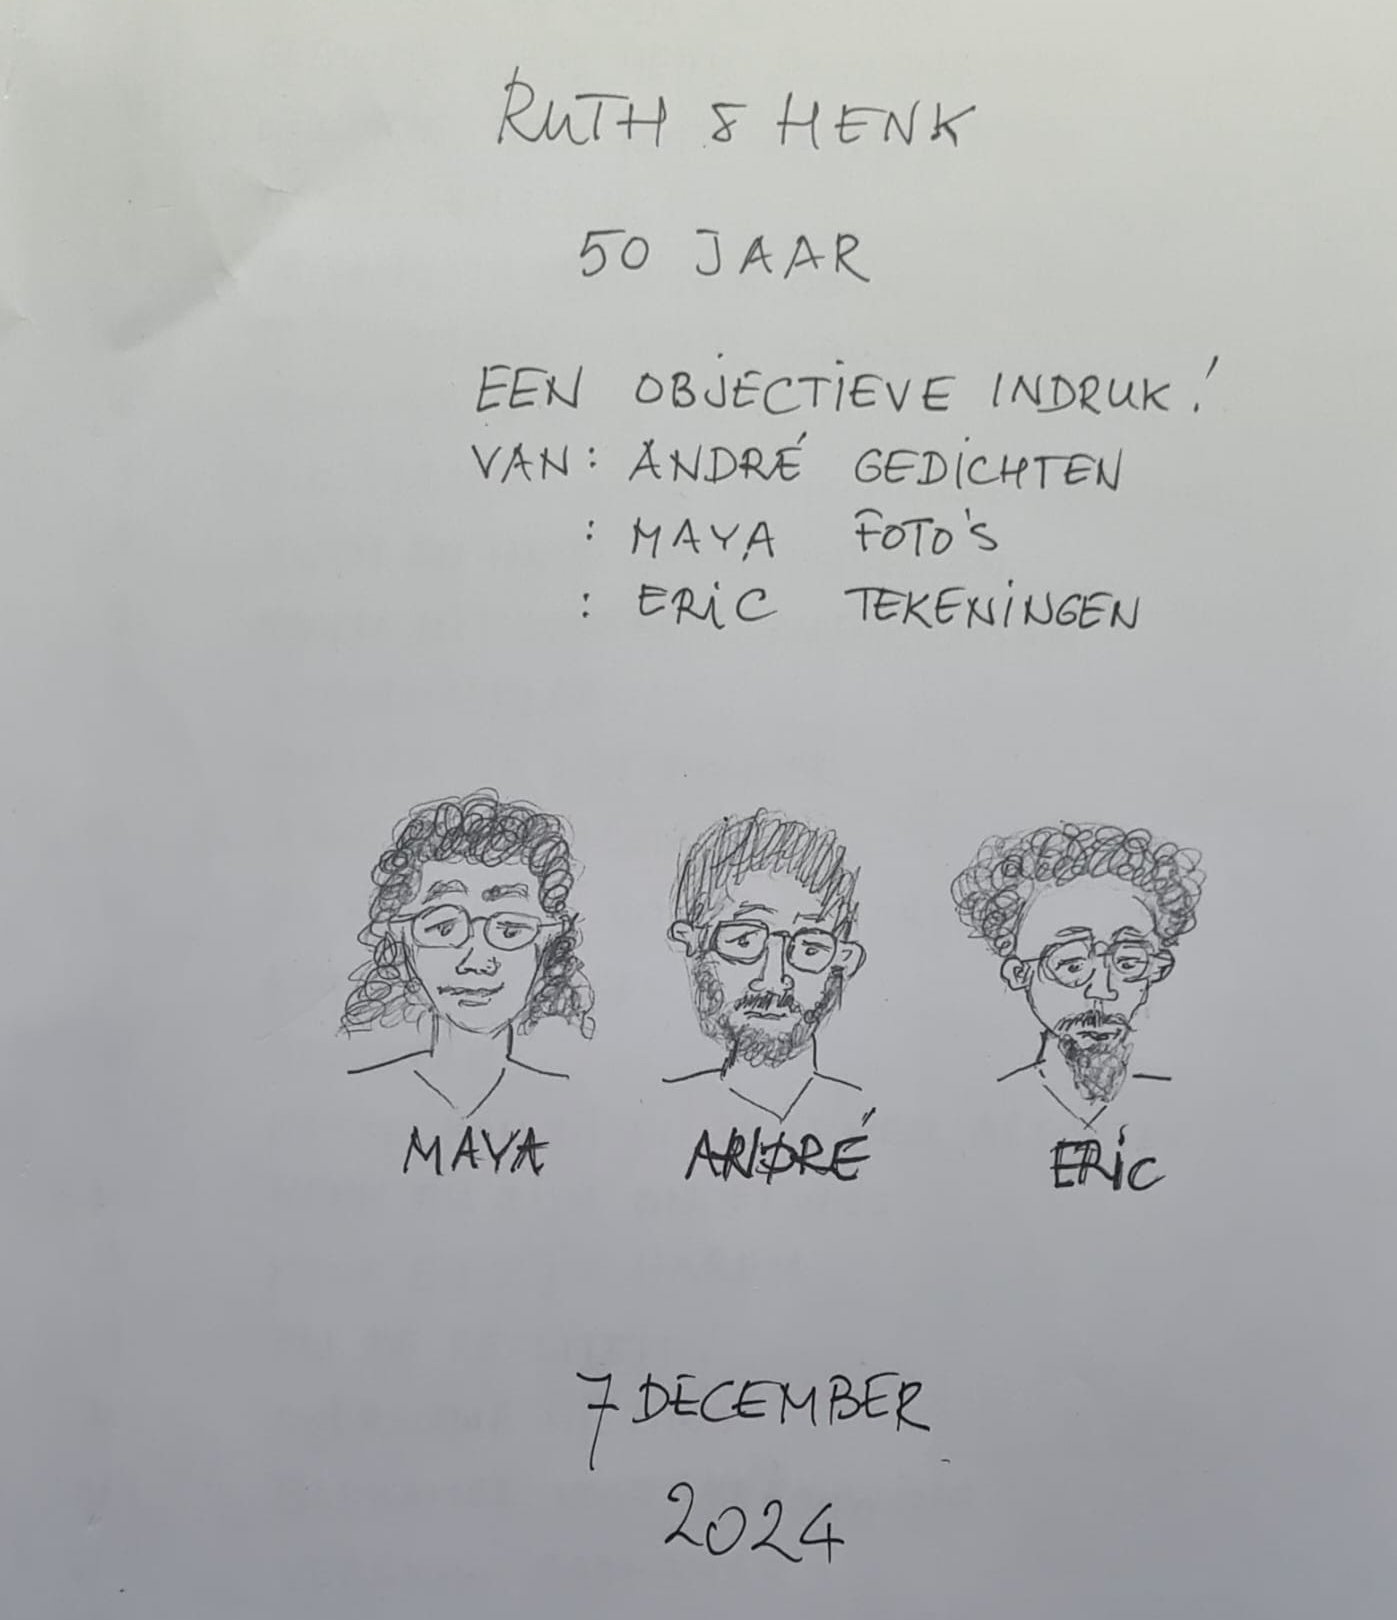 RUTH & HENK
50 JAAR
EEN OBJECTIEVE INDRUK!
VAN: ANDRÉ GEDICHTEN
: MAYA FOTO'S
: ERIC TEKENINGEN
MAYA ANDRÉ ERIC
7 DECEMBER
2024